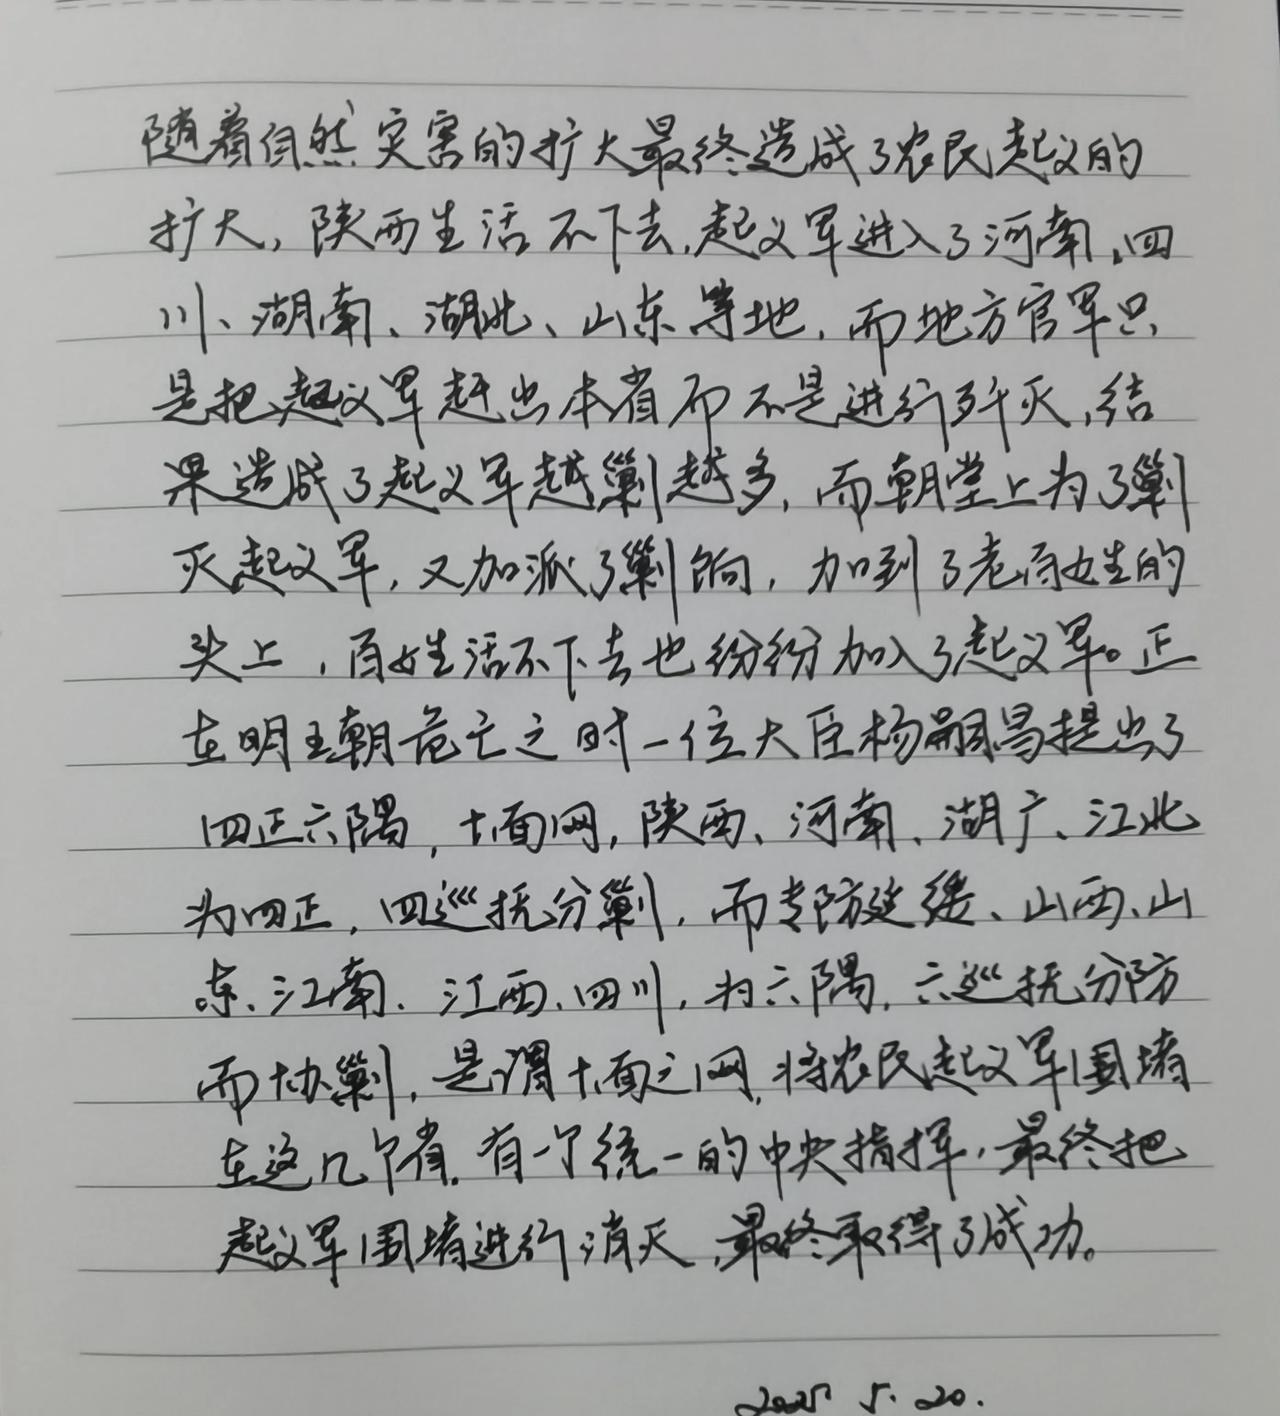 随着自然灾害的扩大最终造成了农民起义的
扩大，陕西生活不下去，起义军进入了河南、四
川、湖南、湖北、山东等地，而地方官军只
是把起义军赶出本省而不是进行歼灭，结
果造成了起义军越剿越多，而朝堂上为了剿
灭起义军，又加派了剿饷，加到了老百姓的
头上，百姓生活不下去也纷纷加入了起义军。正
在明王朝危亡之时一位大臣杨嗣昌提出了
四正六隅，十面网，陕西、河南、湖广、江北
为四正，四巡抚分剿，而专防延绥、山西、山
东、江南、江西、四川，为六隅，六巡抚分防
而协剿，是谓十面之网，将农民起义军围堵
在这几个省，有一个统一的中央指挥，最终把
起义军围堵进行消灭，最终取得了成功。
2025 5.20.